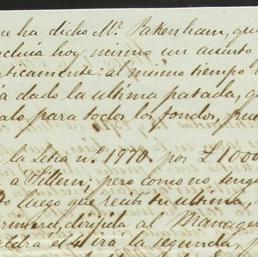 me ha dicho Mr. Pakenham, que
concluia hoy mismo un asunto
aticamente: al mismo tiempo
a dado la ultima patada, q
alo para todos los fondos, pue
la Letra n.º 1970. por £1000
a Tillem; pero como no tenge
to luego que recibi tu ultima,
rimera, dirijida al Manager
eldrá el 4 irá la segunda, p